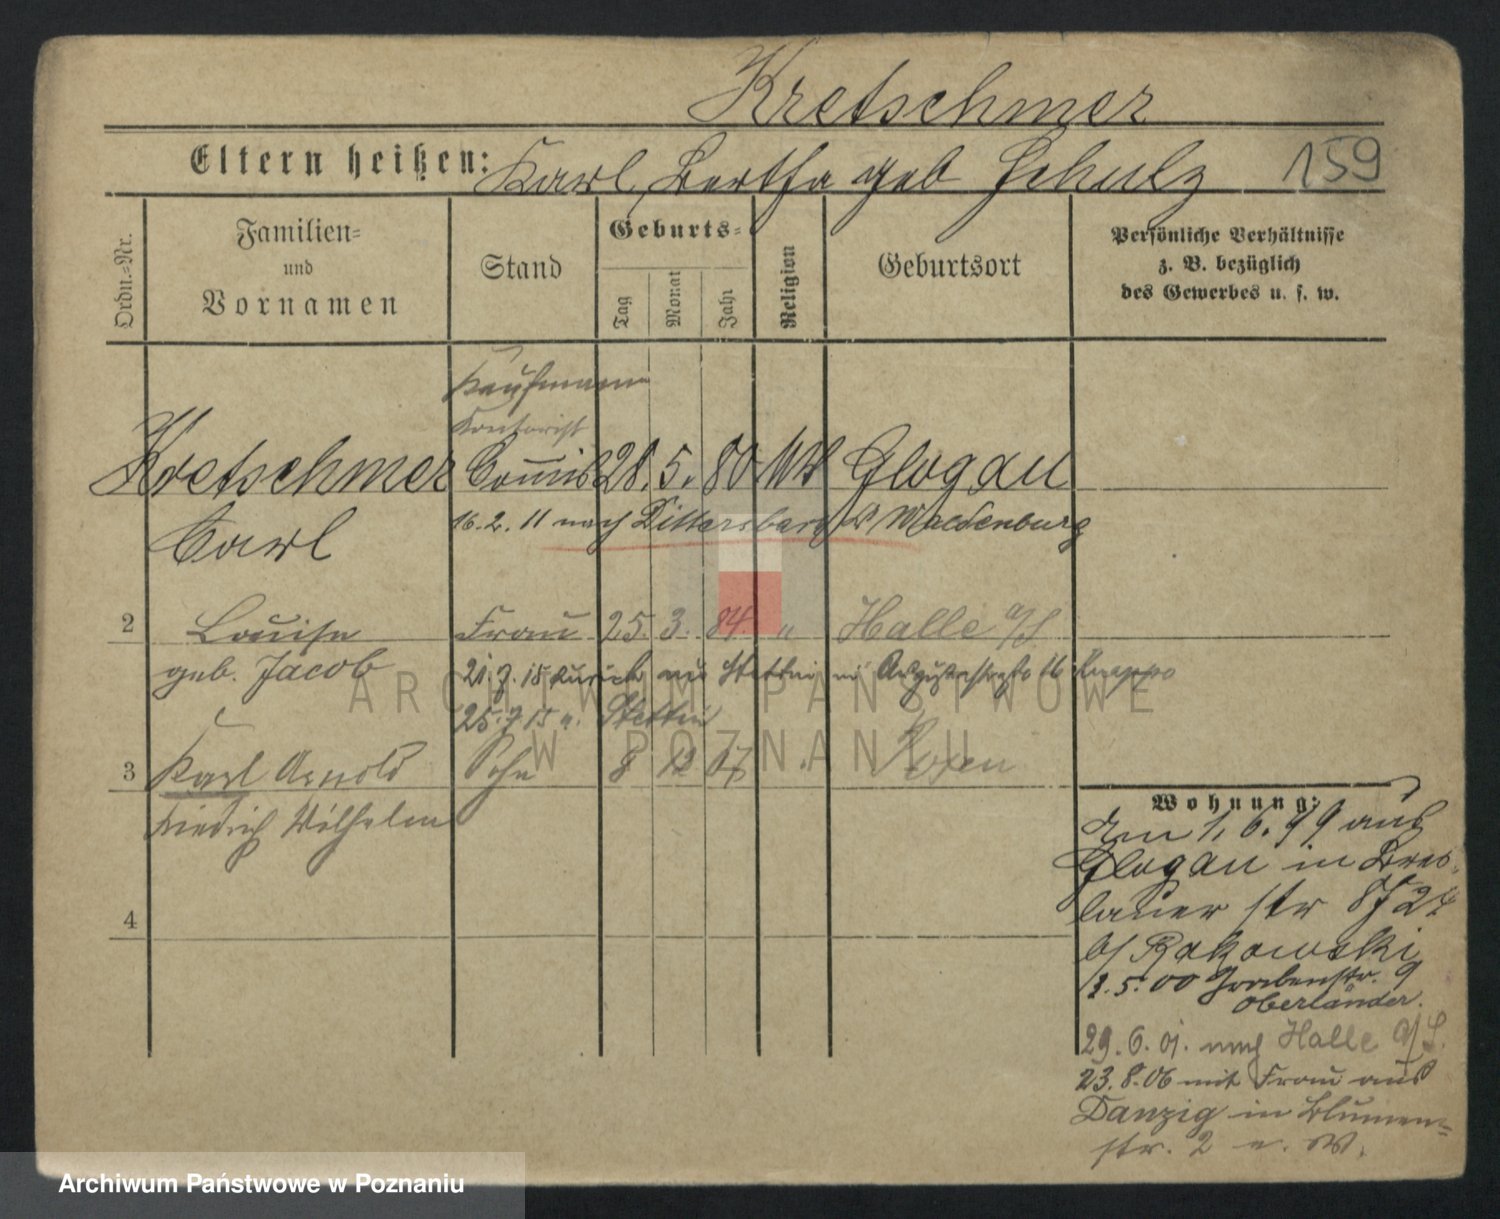 Kretschmer
Eltern heißen: Karl, Bertha geb Schulz 159
Ordn.=Nr.
Familien=
und
Vornamen
Stand
Geburts=
Tag
Monat
Jahr
Religion
Geburtsort
Persönliche Verhältnisse
z. B. bezüglich
des Gewerbes u. s. w.
Kaufmann
Kontorist
Kretschmer Commis 28. 5. 80 Glogau
Carl
16. 2. 11 nach Dittersbach Waldenburg
2 Louise Frau 25. 3. 84 " Halle a/S
geb. Jacob
21. 7. 15 zurück aus Stettin Augustastraße 16
25. 7 15 n. Stettin
3 Karl Arnold Sohn 8 12 07 Posen
Friedrich Wilhelm
4
Wohnung:
Am 1. 6. 99 aus
Glogau in Bres-
lauer str
b/ Rakowski
1. 5. 00 Grabenstr. 9
Oberländer.
29. 6. 01. nach Halle a/S.
23. 8. 06 mit Frau aus
Danzig in Blumen=
str. 2
ARCHIWUM PAŃSTWOWE
W POZNANIU
Archiwum Państwowe w Poznaniu